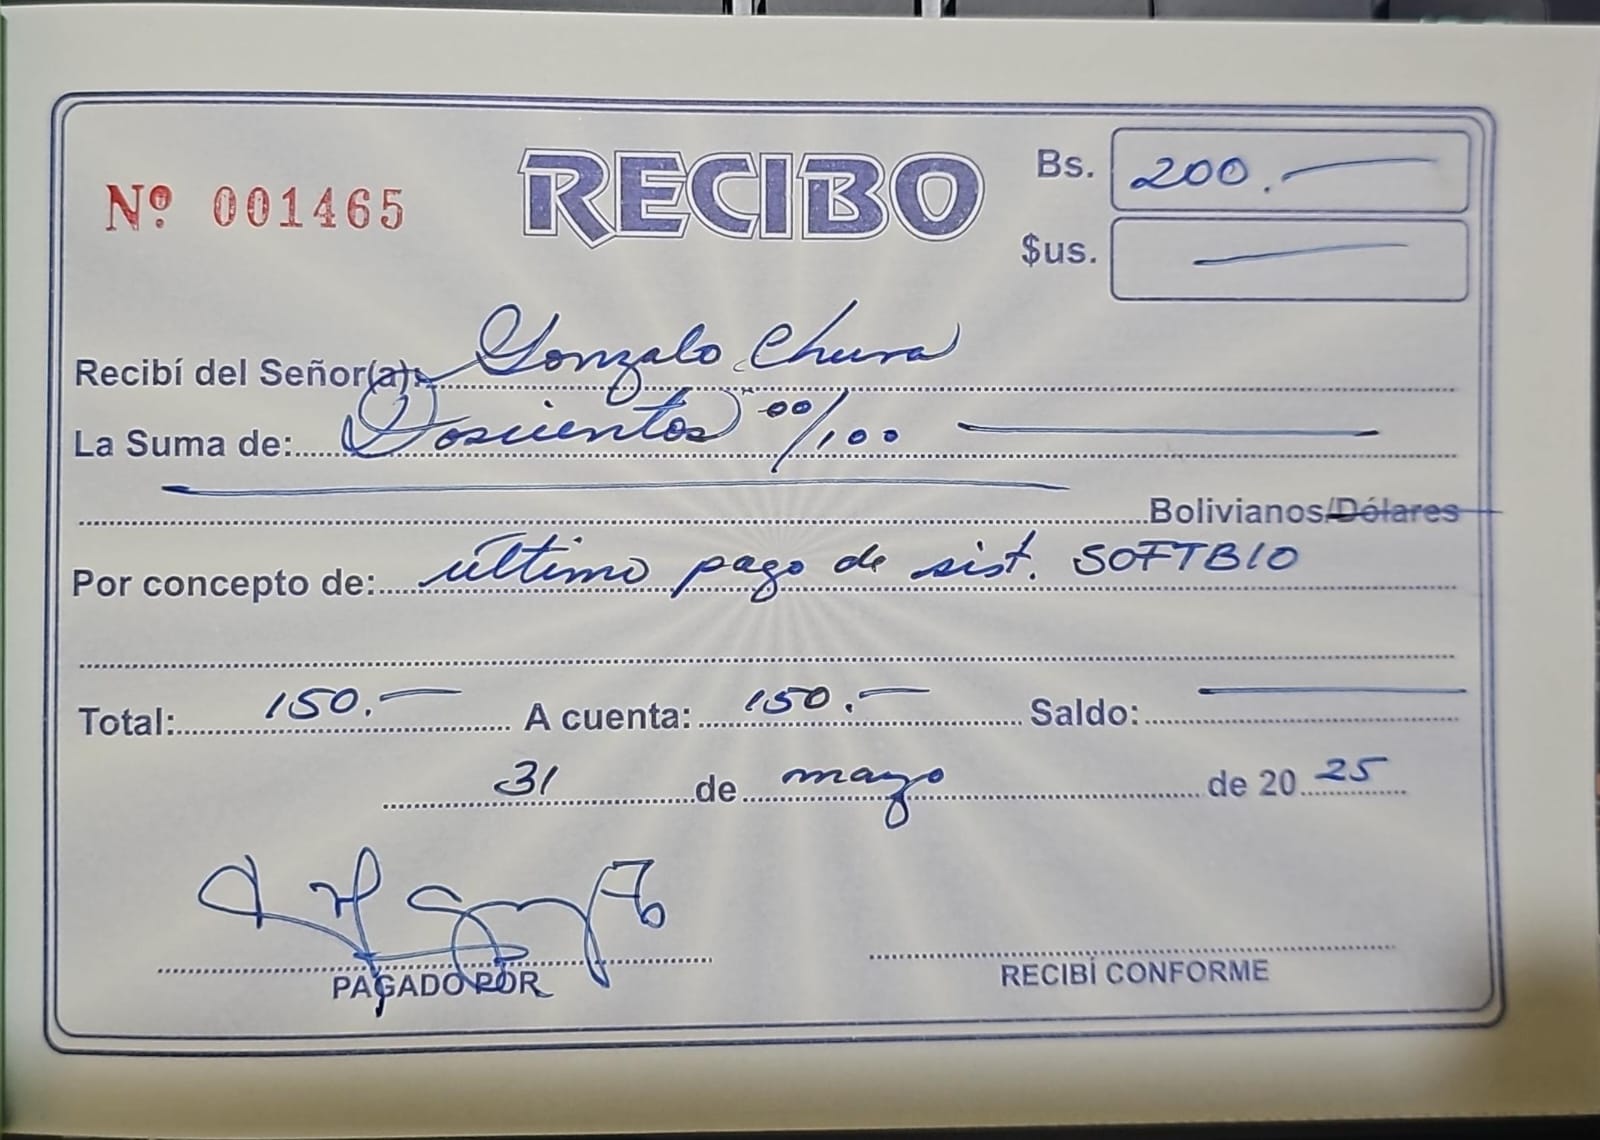 Nº 001465
RECIBO
Bs. 200.-
$us. -
Recibí del Señor(a): Gonzalo Chura
La Suma de: Doscientos 00/100
Bolivianos/Dólares
Por concepto de: último pago de sist. SOFTBIO
Total: 150.- A cuenta: 150.- Saldo:
31 de mayo de 2025
PAGADO POR
RECIBÍ CONFORME